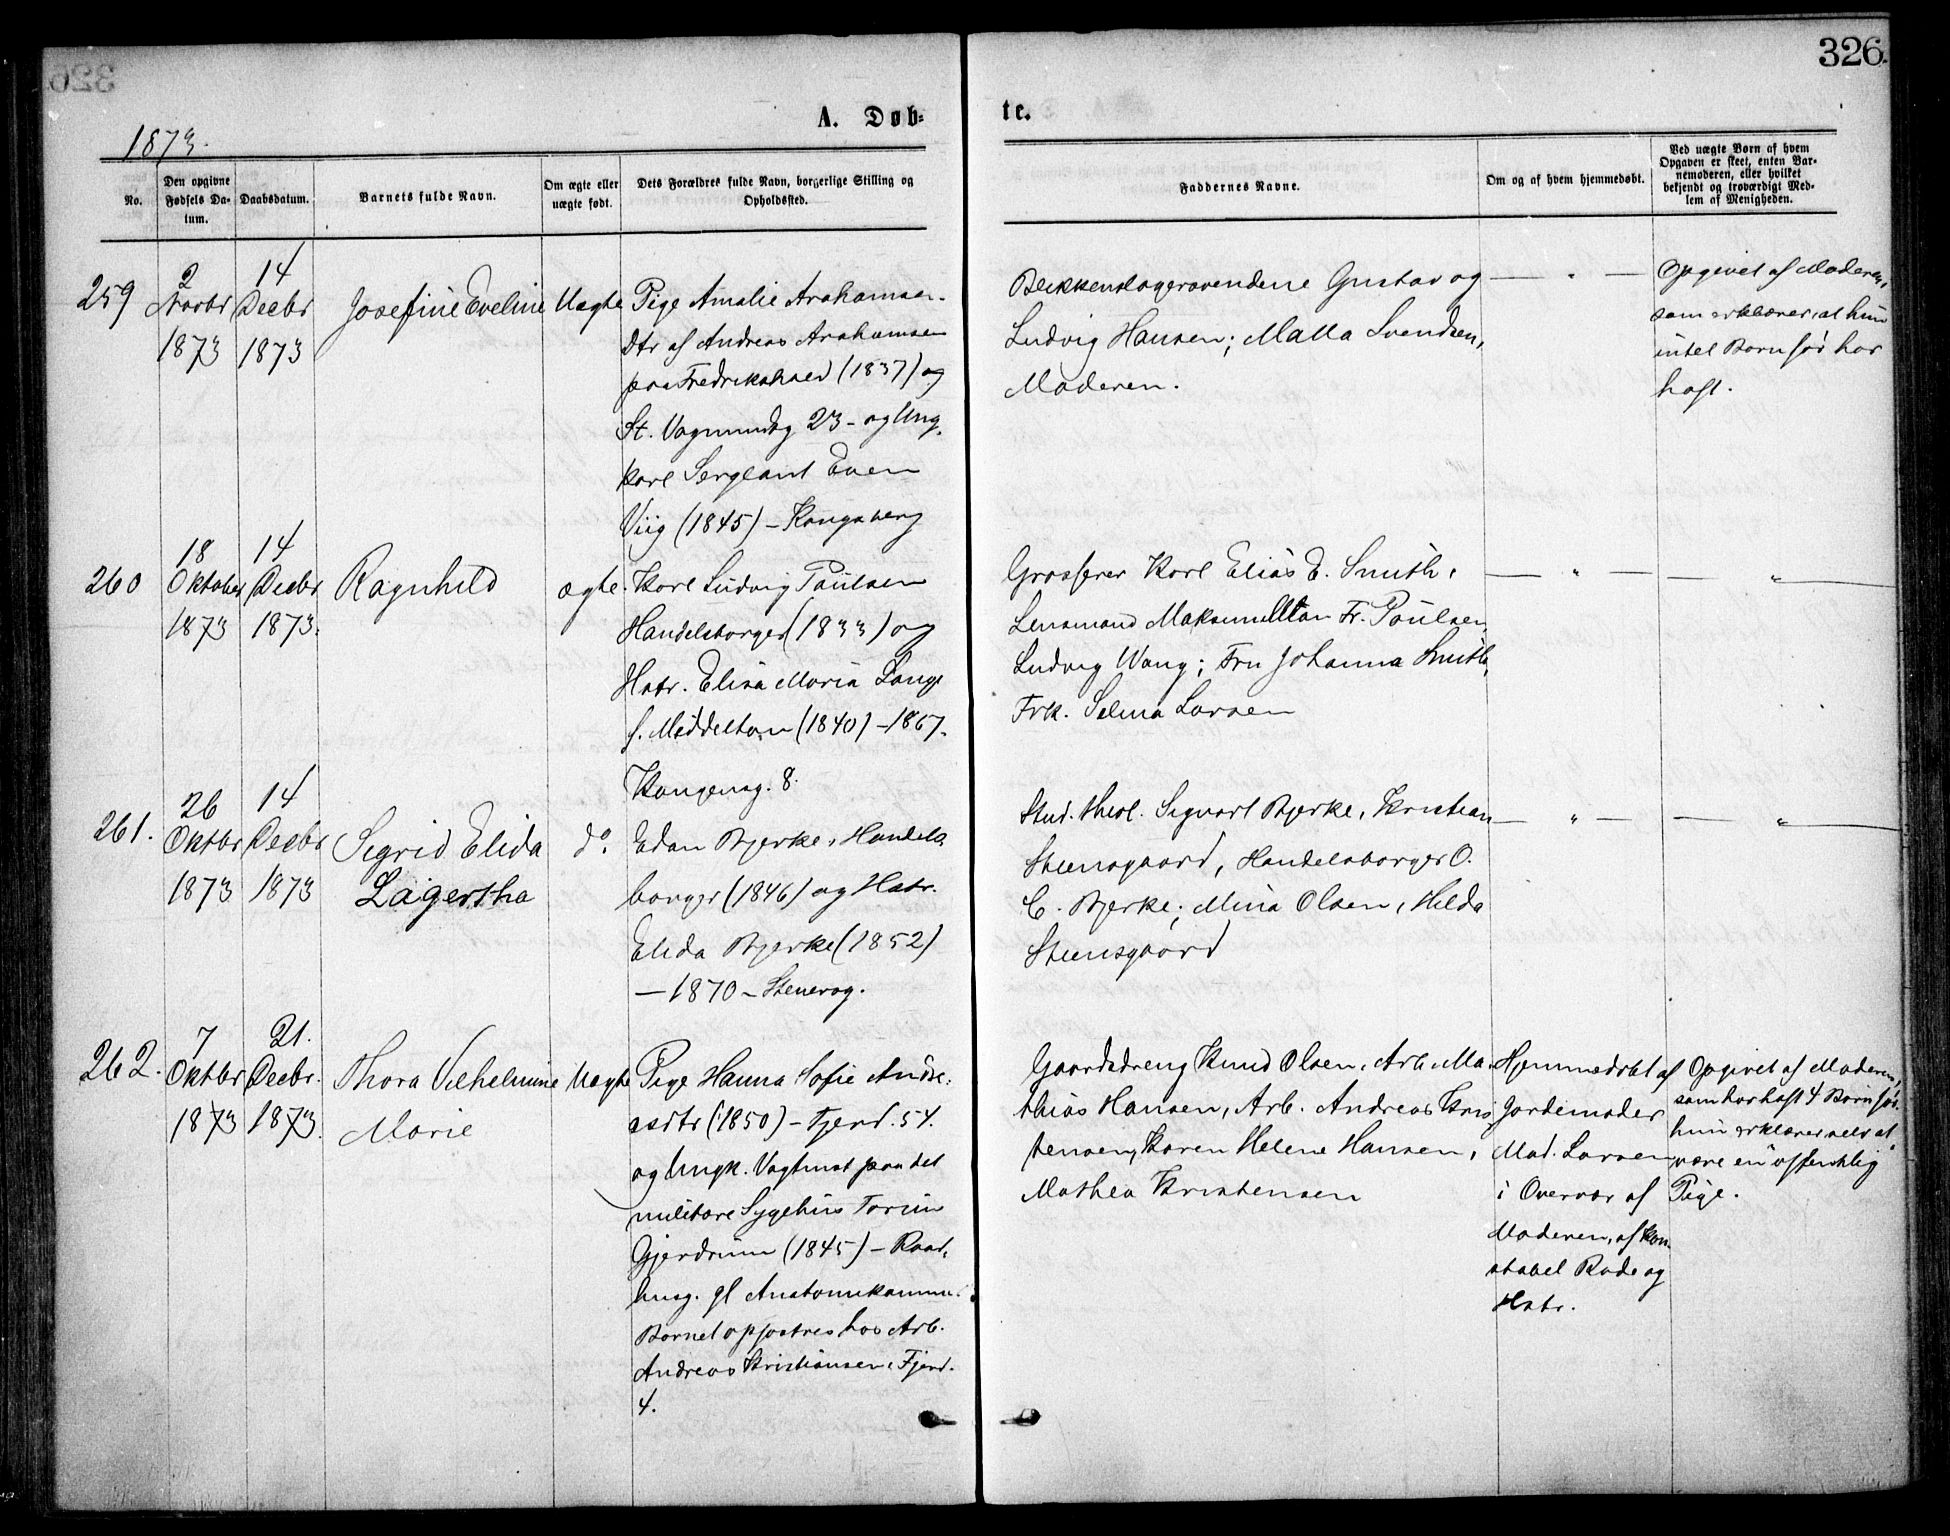 326.
A. Døb-
te.
1873.
No.
Den opgivne
Fødsels Da-
tum.
Daabsdatum.
Barnets fulde Navn.
Om ægte eller
uægte født.
Dets Forældres fulde Navn, borgerlige Stilling og
Opholdssted.
Faddernes Navne.
Om og af hvem hjemmedøbt.
Ved uægte Børn af hvem
Opgaven er skeet, enten Bar-
nemoderen, eller hvilket
bekjendt og troværdigt Med-
lem af Menigheden.
259
2
Novbr
1873
14
Decbr
1873
Josefine Eveline
Uægte
Pige Amalie Arahamsen-
Dtr af Andreas Arahamsen
paa Fredrikshald (1837) og
St. Vognmandsg 23 - og Ung-
karl Sergeant Even
Viig (1845) - Kongsberg
Blikkenslagersvendene Gustav og
Ludvig Hansen; Malla Svendsen,
Moderen.
— " —
Opgivet af Moderen,
som erklærer, at hun
intet Barn før har
haft.
260
18
Oktober
1873
14
Decbr
1873.
Ragnhild
ægte.
Karl Ludvig Paulsen
Handelsborger (1833) og
Hstr. Elisa Maria Lange
f. Middelton (1840) - 1867.
Kongensg. 8.
Grosserer Karl Elias E. Smith,
Lensmand Maksimillian Fr. Paulsen,
Ludvig Wang; Fru Johanna Smith,
Frk. Selma Larsen
— " —
— " —
261.
26
Oktbr
1873
14
Decbr
1873
Sigrid Elida
Lagertha
do.
Edan Bjerke, Handels
borger (1846) og Hstr.
Elida Bjerke (1852)
— 1870 - Stenersg.
Stud. theol. Sigvart Bjerke, Kristian
Steensgaard, Handelsborger O.
C. Bjerke; Mina Olsen, Hilda
Steensgaard
— " —
— " —
262.
7
Oktbr
1873
21.
Decbr.
1873.
Thora Vilhelmine
Marie
Uægte
Pige Hanna Sofie Andre-
asdtr (1850) - Fjerd. 54.
og Ungk. Vagtmst paa det
militære Sygehus Torum
Gjerdrum (1845) - Raad-
husg. gl Anatomikammer.
Barnet opfostres hos Arb.
Andreas Kristiansen, Fjerd.
4.
Gaardsdreng Knud Olsen, Arb. Ma-
thias Hansen, Arb. Andreas Kris
tensen, Karen Helene Hansen,
Mathea Kristensen
Hjemmedøbt af
Jordemoder
Mad. Larsen
i Overvær af
Moderen, af Kon-
stabel Rode og
Hstr.
Opgivet af Moderen,
som har haft 4 Børn før.
hun erklærer selv at
være en "offentlig"
Pige.